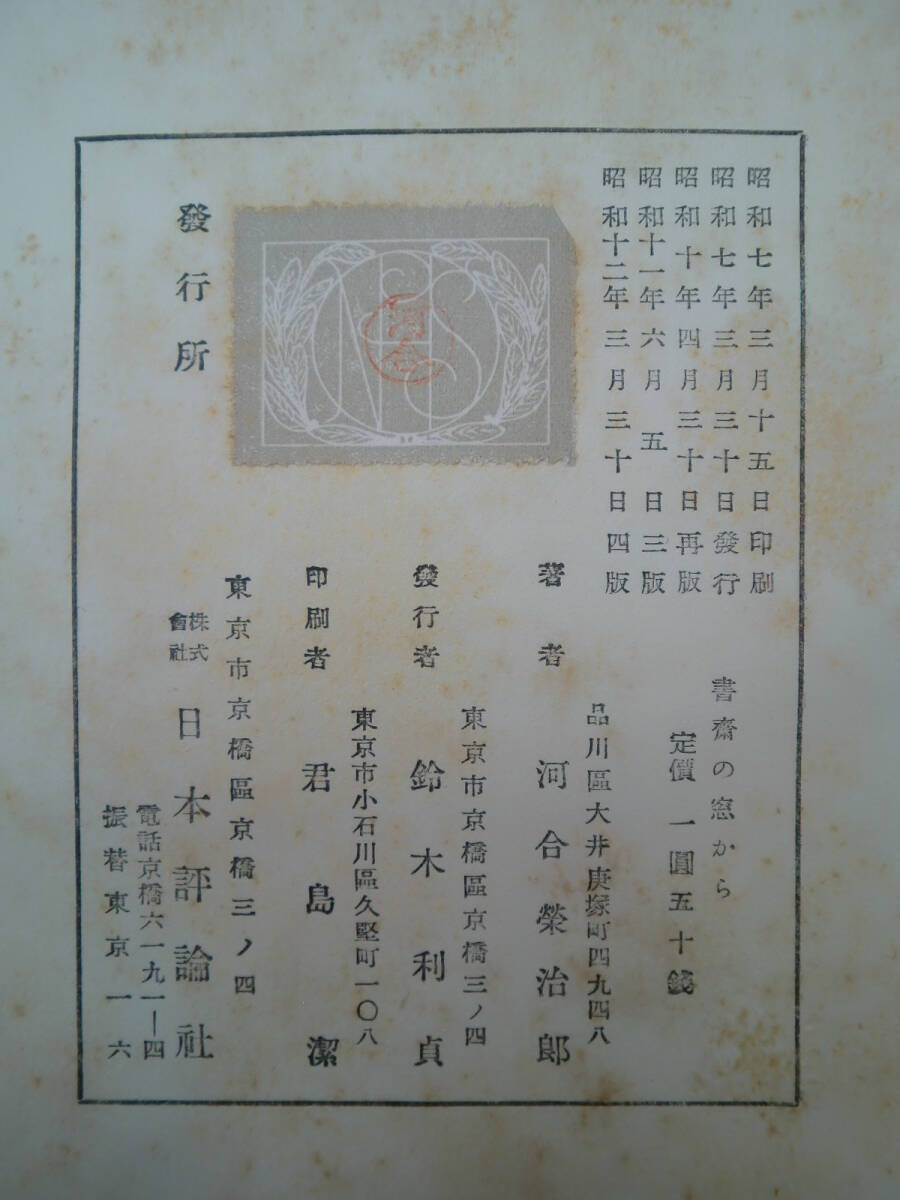 昭和七年三月十五日印刷
昭和七年三月三十日發行
昭和十年四月三十日再版
昭和十一年六月五日三版
昭和十二年三月三十日四版
書齋の窓から
定價一圓五十錢
品川區大井庚塚町四九四八
著者 河合榮治郎
東京市京橋區京橋三ノ四
發行者 鈴木利貞
東京市小石川區久堅町一〇八
印刷者 君島潔
發行所
東京市京橋區京橋三ノ四
株式會社 日本評論社
電話京橋六一九一―四
振替東京一六
河合